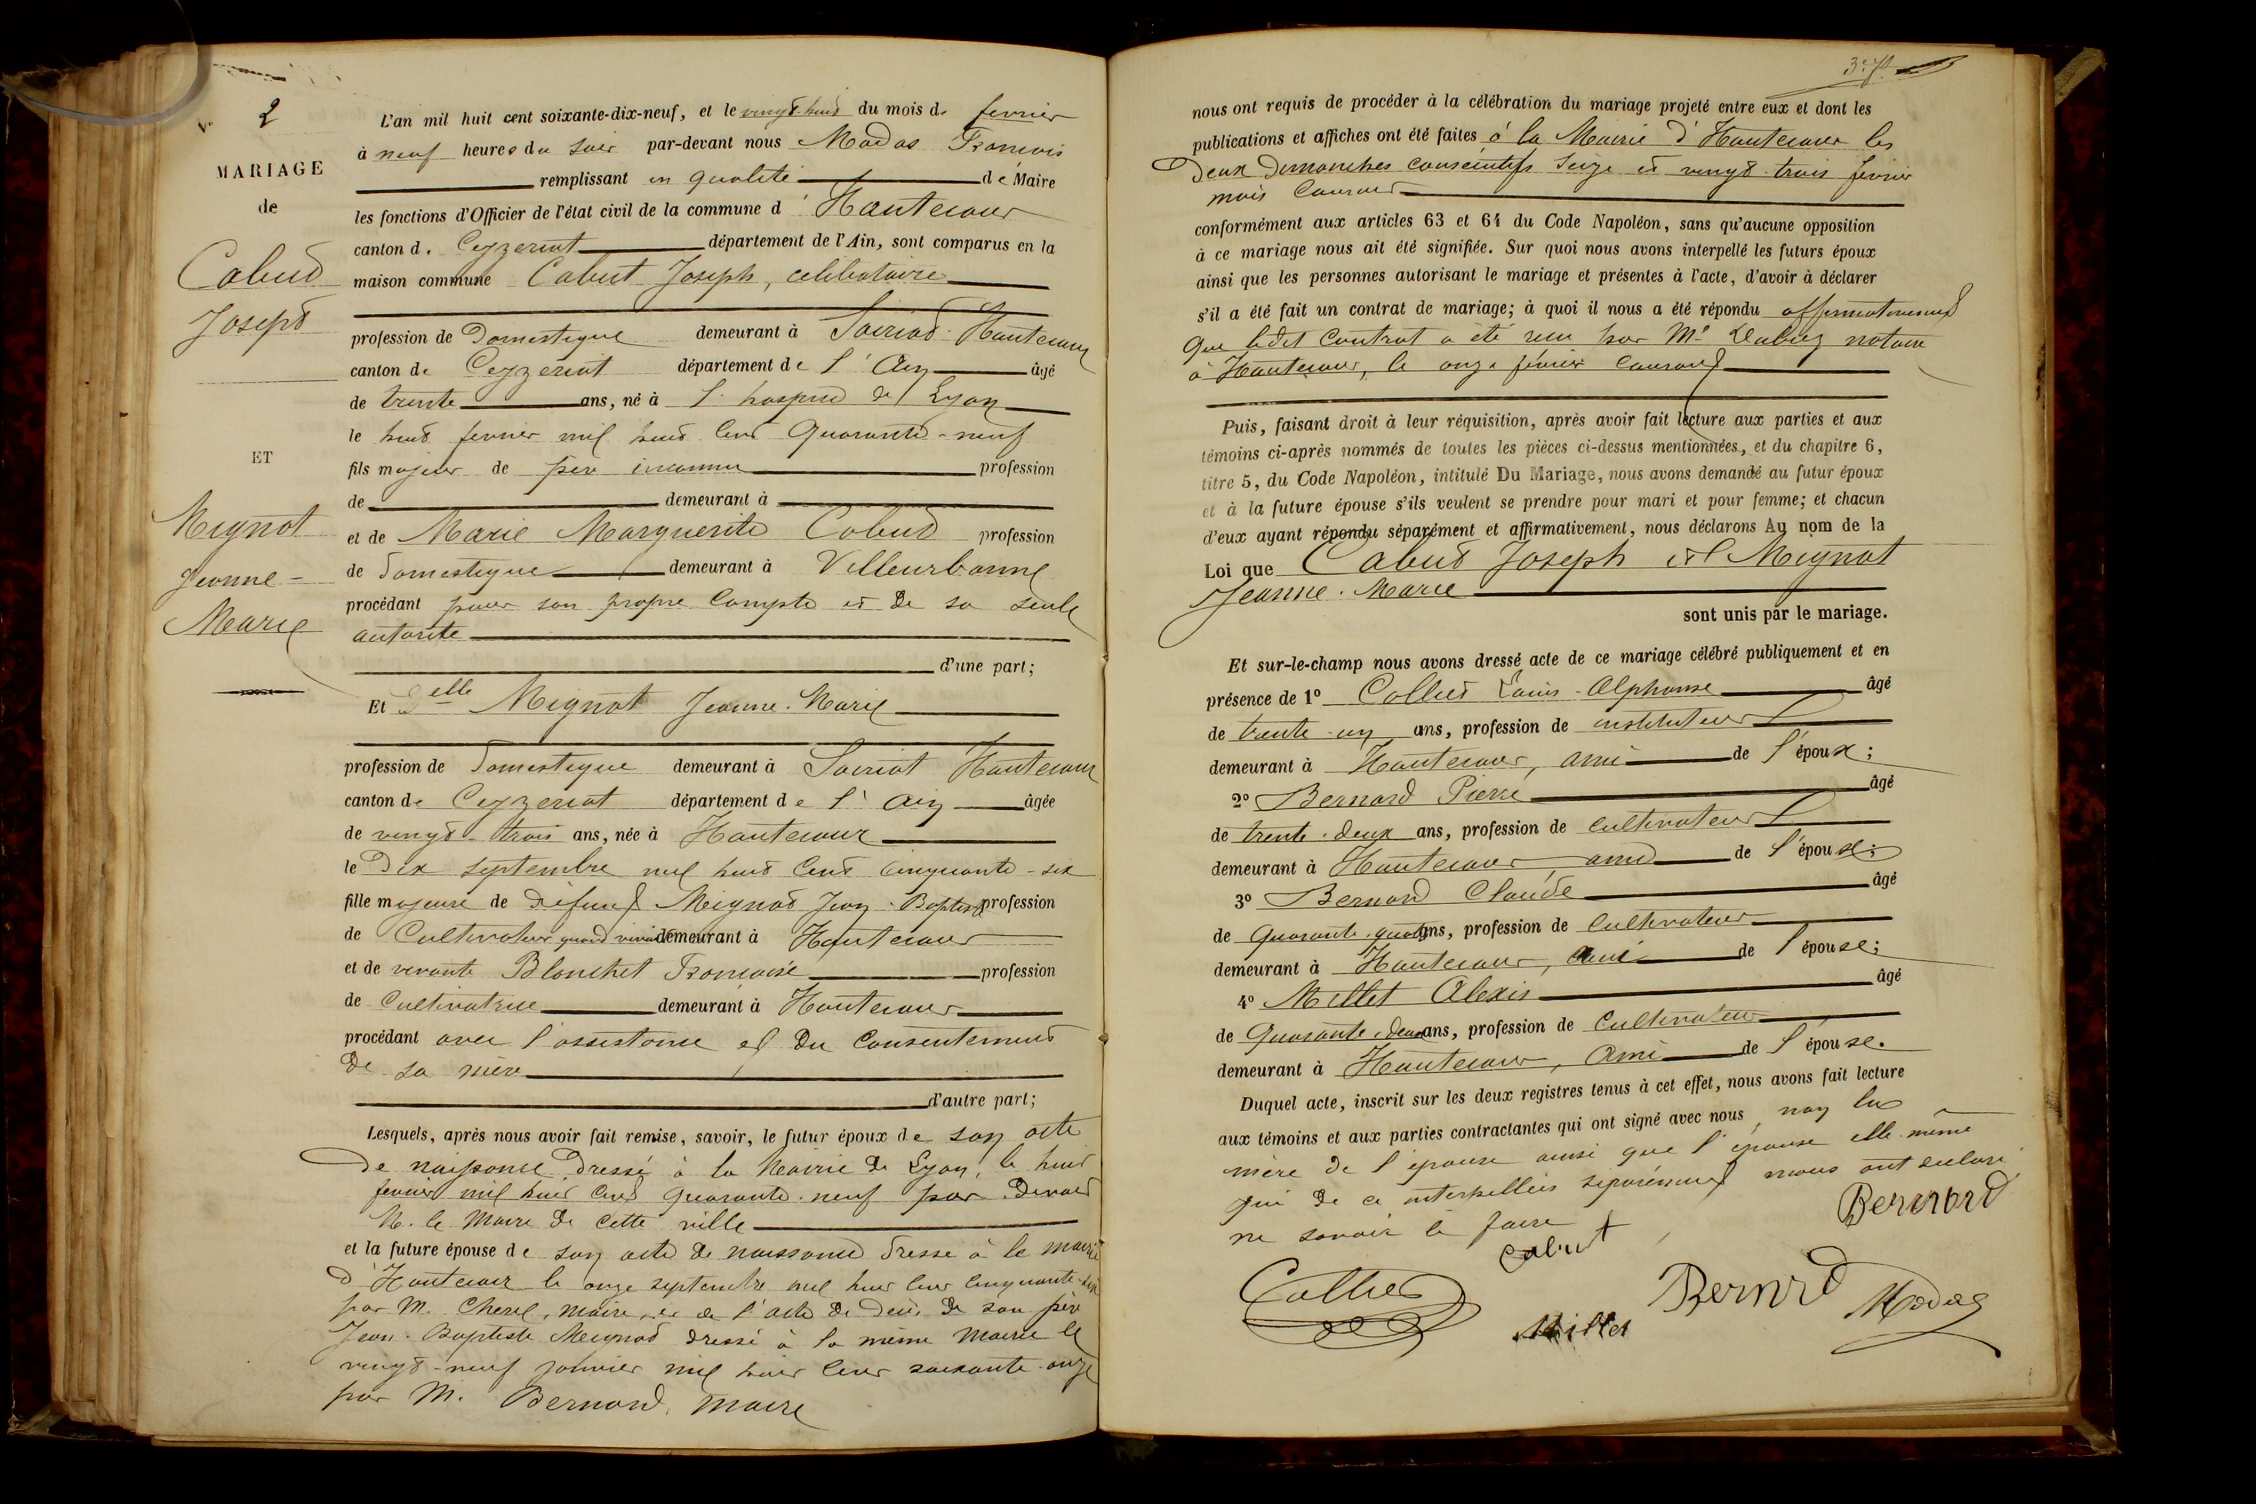 2
MARIAGE
de
Cabut
Joseph
ET
Mignot
Jeanne-
Marie
L'an mil huit cent soixante-dix-neuf, et le vingt-huit du mois de fevrier
à neuf heures du soir par-devant nous Modas Francois
remplissant en qualité de Maire
les fonctions d'Officier de l'état civil de la commune d'Hautecour
canton de Ceyzeriat département de l'Ain, sont comparus en la
maison commune Cabut Joseph, celibataire
profession de Domestique demeurant à Soiriat Hautecour
canton de Ceyzeriat département de l'Ain âgé
de trente ans, né à l'hospice de Lyon
le huit fevrier mil huit cent quarante-neuf
fils majeur de père inconnu profession
de demeurant à
et de Marie Marguerite Cabut profession
de Domestique demeurant à Villeurbanne
procédant pour son propre compte et de sa seule
autorité
d'une part;
Et Delle Mignot Jeanne-Marie
profession de Domestique demeurant à Soiriat Hautecour
canton de Ceyzeriat département de l'Ain âgée
de vingt-trois ans, née à Hautecour
le Dix septembre mil huit cent cinquante-six
fille majeure de Défunt Mignot Jean-Baptiste profession
de Cultivateur quand vivait demeurant à Hautecour
et de vivante Blanchet Françoise profession
de Cultivatrice demeurant à Hautecour
procédant avec l'assistance et du consentement
De sa mère
d'autre part;
Lesquels, après nous avoir fait remise, savoir, le futur époux de son acte
de naissance dressé à la Mairie de Lyon, le huit
fevrier mil huit cent quarante-neuf par devant
M. le Maire de cette ville
et la future épouse de son acte de naissance dressé à la mairie
d'Hautecour le onze septembre mil huit cent cinquante-six
par M. Chevil, maire, et de l'acte de décès de son père
Jean-Baptiste Mignot dressé à la même Mairie le
vingt-neuf janvier mil huit cent soixante-onze
par M. Bernard, maire
nous ont requis de procéder à la célébration du mariage projeté entre eux et dont les
publications et affiches ont été faites à la Mairie d'Hautecour les
Deux Dimanches consécutifs seize et vingt-trois février
mois courant
conformément aux articles 63 et 64 du Code Napoléon, sans qu'aucune opposition
à ce mariage nous ait été signifiée. Sur quoi nous avons interpellé les futurs époux
ainsi que les personnes autorisant le mariage et présentes à l'acte, d'avoir à déclarer
s'il a été fait un contrat de mariage; à quoi il nous a été répondu affirmativement
Que ledit contrat a été reçu par Me notaire
à Hautecour, le onze février courant
Puis, faisant droit à leur réquisition, après avoir fait lecture aux parties et aux
témoins ci-après nommés de toutes les pièces ci-dessus mentionnées, et du chapitre 6,
titre 5, du Code Napoléon, intitulé Du Mariage, nous avons demandé au futur époux
et à la future épouse s'ils veulent se prendre pour mari et pour femme; et chacun
d'eux ayant répondu séparément et affirmativement, nous déclarons Au nom de la
Loi que Cabut Joseph et Mignot
Jeanne-Marie
sont unis par le mariage.
Et sur-le-champ nous avons dressé acte de ce mariage célébré publiquement et en
présence de 1° Colliet Louis-Alphonse âgé
de trente-un ans, profession de instituteur
demeurant à Hautecour, ami de l'époux;
2° Bernard Pierre âgé
de trente-deux ans, profession de cultivateur
demeurant à Hautecour ami de l'épouse;
3° Bernard Claude âgé
de Quarante-quatre ans, profession de cultivateur
demeurant à Hautecour, ami de l'épouse;
4° Millet Alexis âgé
de Quarante-deux ans, profession de Cultivateur
demeurant à Hautecour, ami de l'épouse.
Duquel acte, inscrit sur les deux registres tenus à cet effet, nous avons fait lecture
aux témoins et aux parties contractantes qui ont signé avec nous, non la
mère de l'épouse ainsi que l'épouse elle-même
qui de ce interpellées séparément nous ont déclaré
ne savoir le faire
Bernard
Cabut
Colliet
Bernard
Modas
Millet